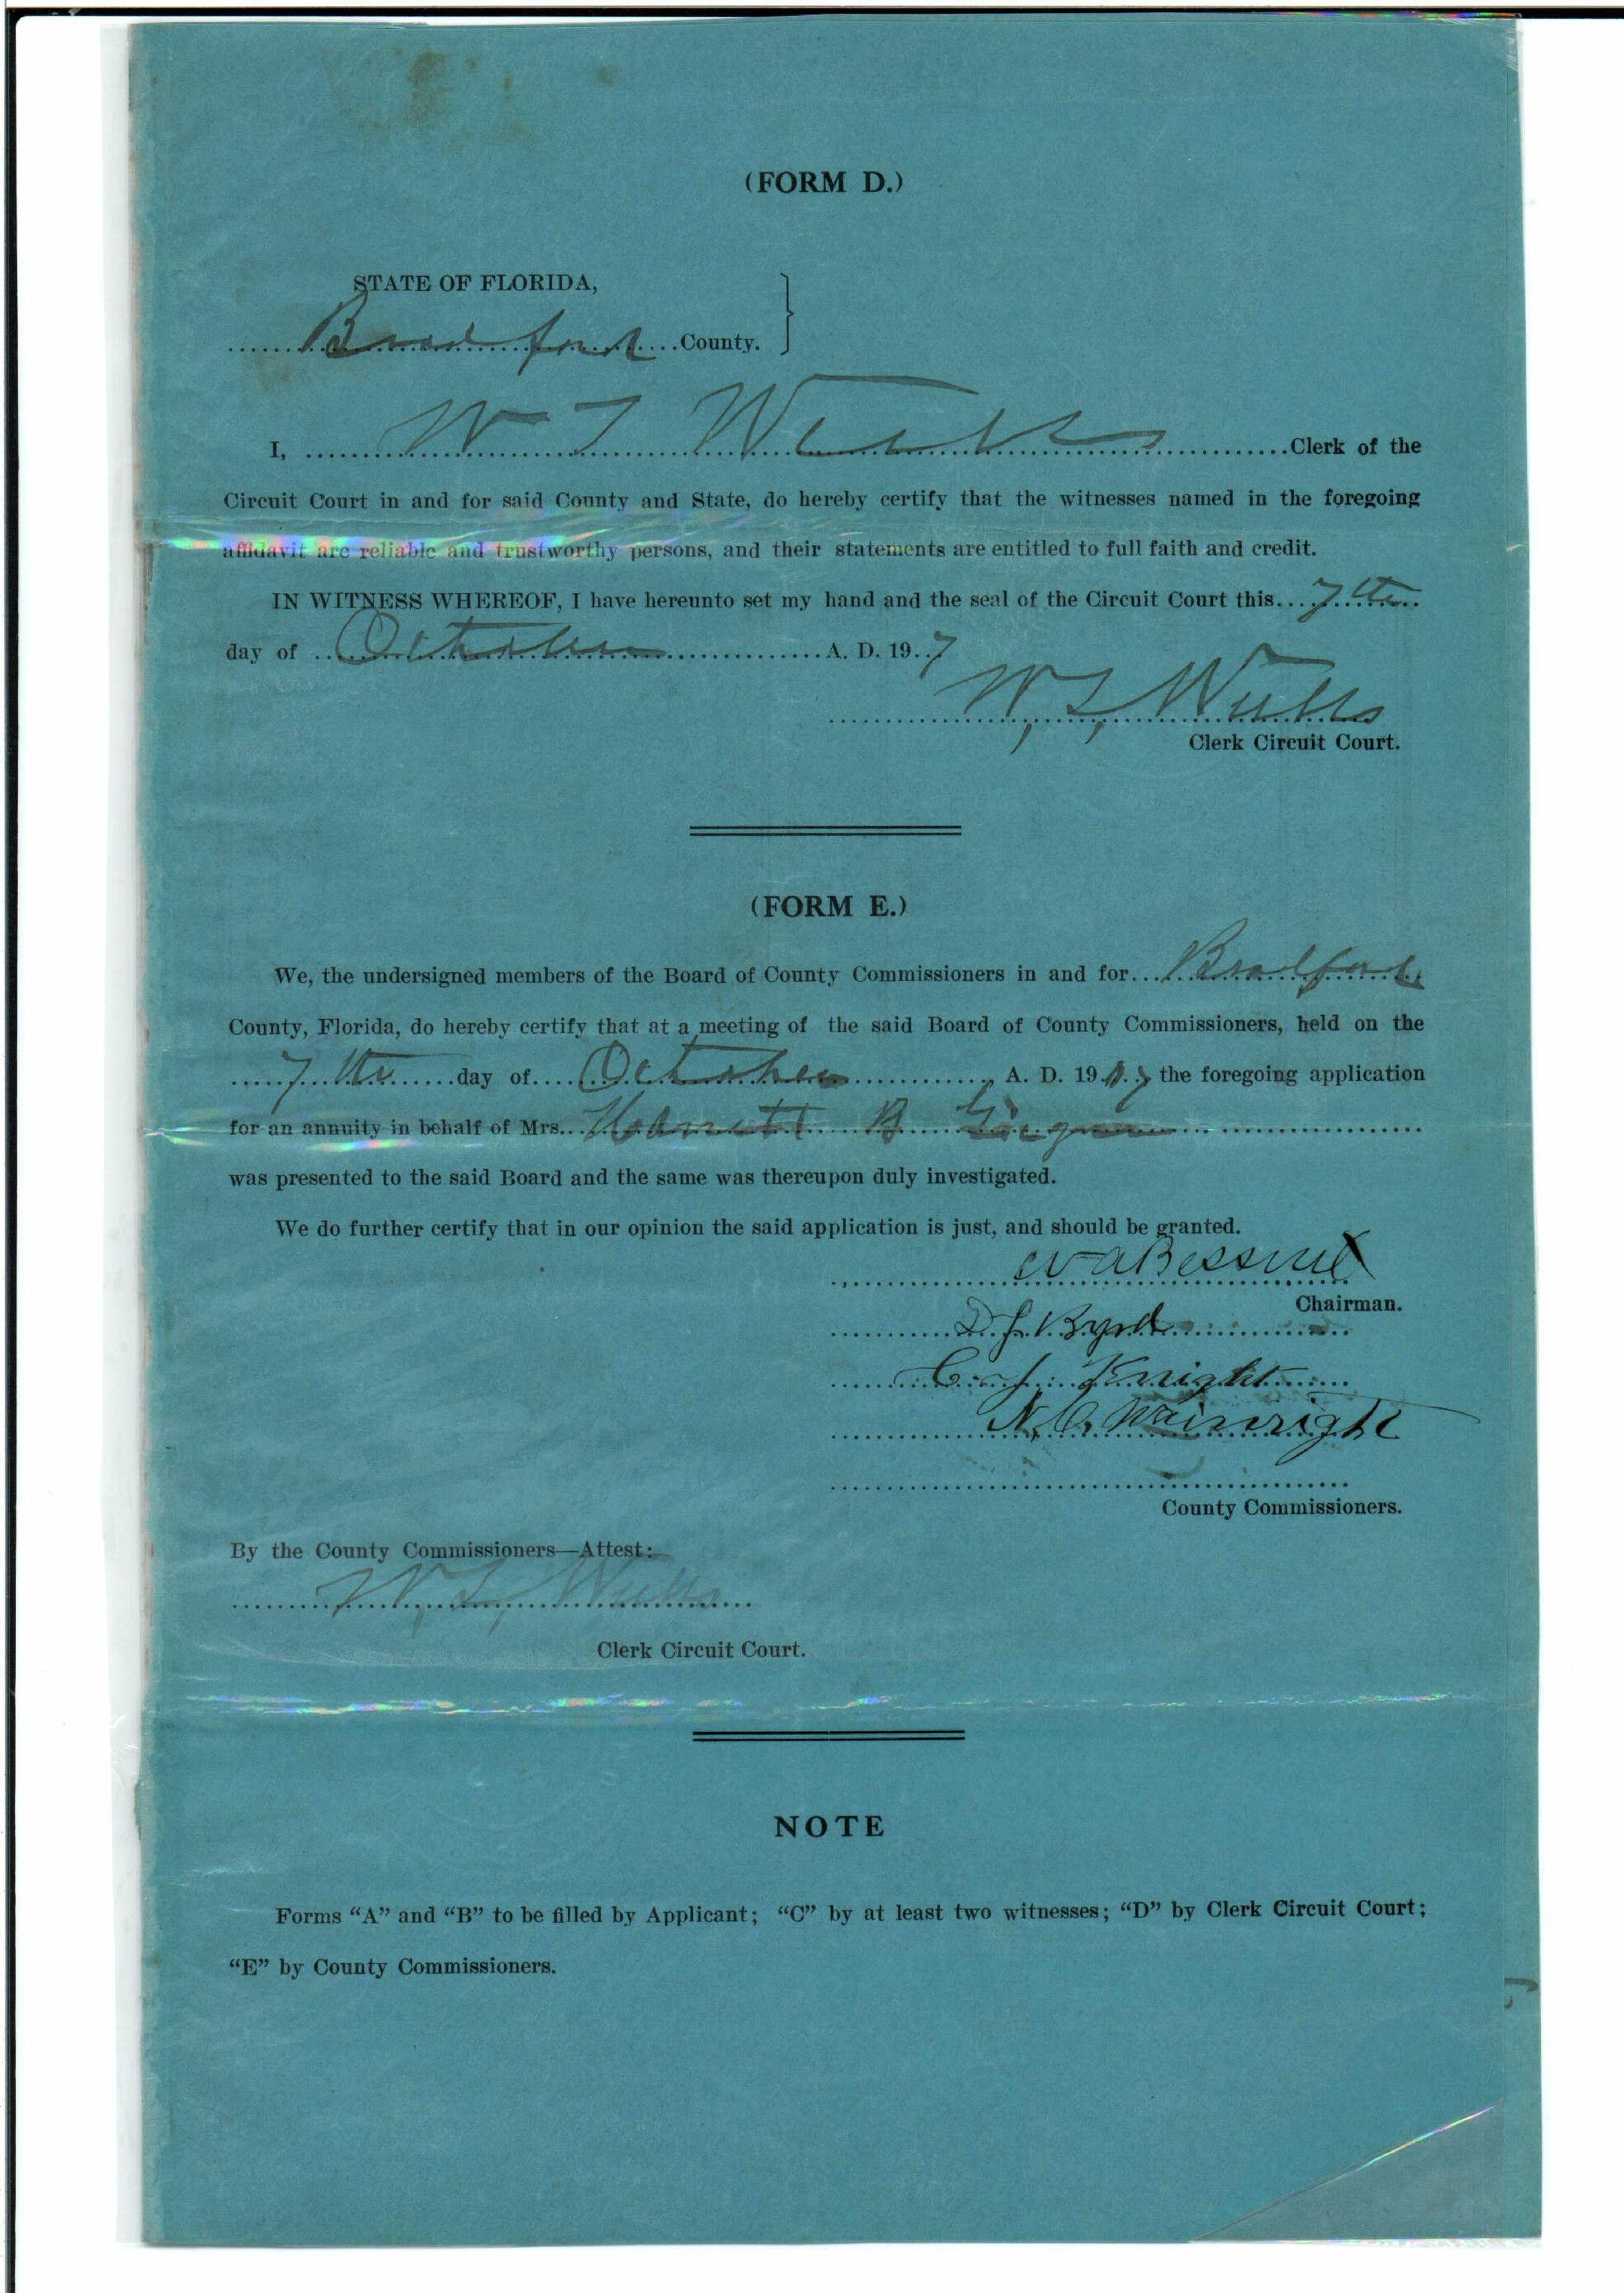 (FORM D.)
STATE OF FLORIDA,
Bradford County.
I, W T Clerk of the
Circuit Court in and for said County and State, do hereby certify that the witnesses named in the foregoing
affidavit are reliable and trustworthy persons, and their statements are entitled to full faith and credit.
IN WITNESS WHEREOF, I have hereunto set my hand and the seal of the Circuit Court this 7th
day of October A. D. 19 7
Clerk Circuit Court.
(FORM E.)
We, the undersigned members of the Board of County Commissioners in and for Bradford
County, Florida, do hereby certify that at a meeting of the said Board of County Commissioners, held on the
7th day of October A. D. 1907 the foregoing application
for an annuity in behalf of Mrs. B
was presented to the said Board and the same was thereupon duly investigated.
We do further certify that in our opinion the said application is just, and should be granted.
Chairman.
D J Byrd
C J Knight
N. A. Wainwright
County Commissioners.
By the County Commissioners—Attest:
Clerk Circuit Court.
NOTE
Forms “A” and “B” to be filled by Applicant; “C” by at least two witnesses; “D” by Clerk Circuit Court;
“E” by County Commissioners.